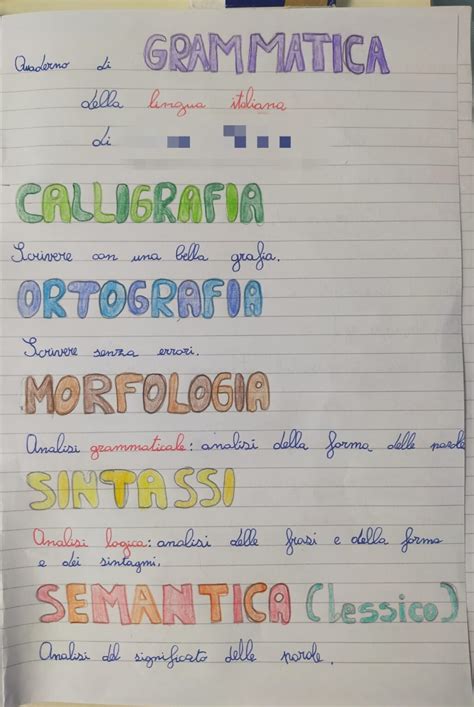 Quaderno di GRAMMATICA
della lingua italiana
di
CALLIGRAFIA
Scrivere con una bella grafia.
ORTOGRAFIA
Scrivere senza errori.
MORFOLOGIA
Analisi grammaticale: analisi della forma delle parole
SINTASSI
Analisi logica: analisi delle frasi e della forma
e dei sintagmi.
SEMANTICA (lessico)
Analisi del significato delle parole.